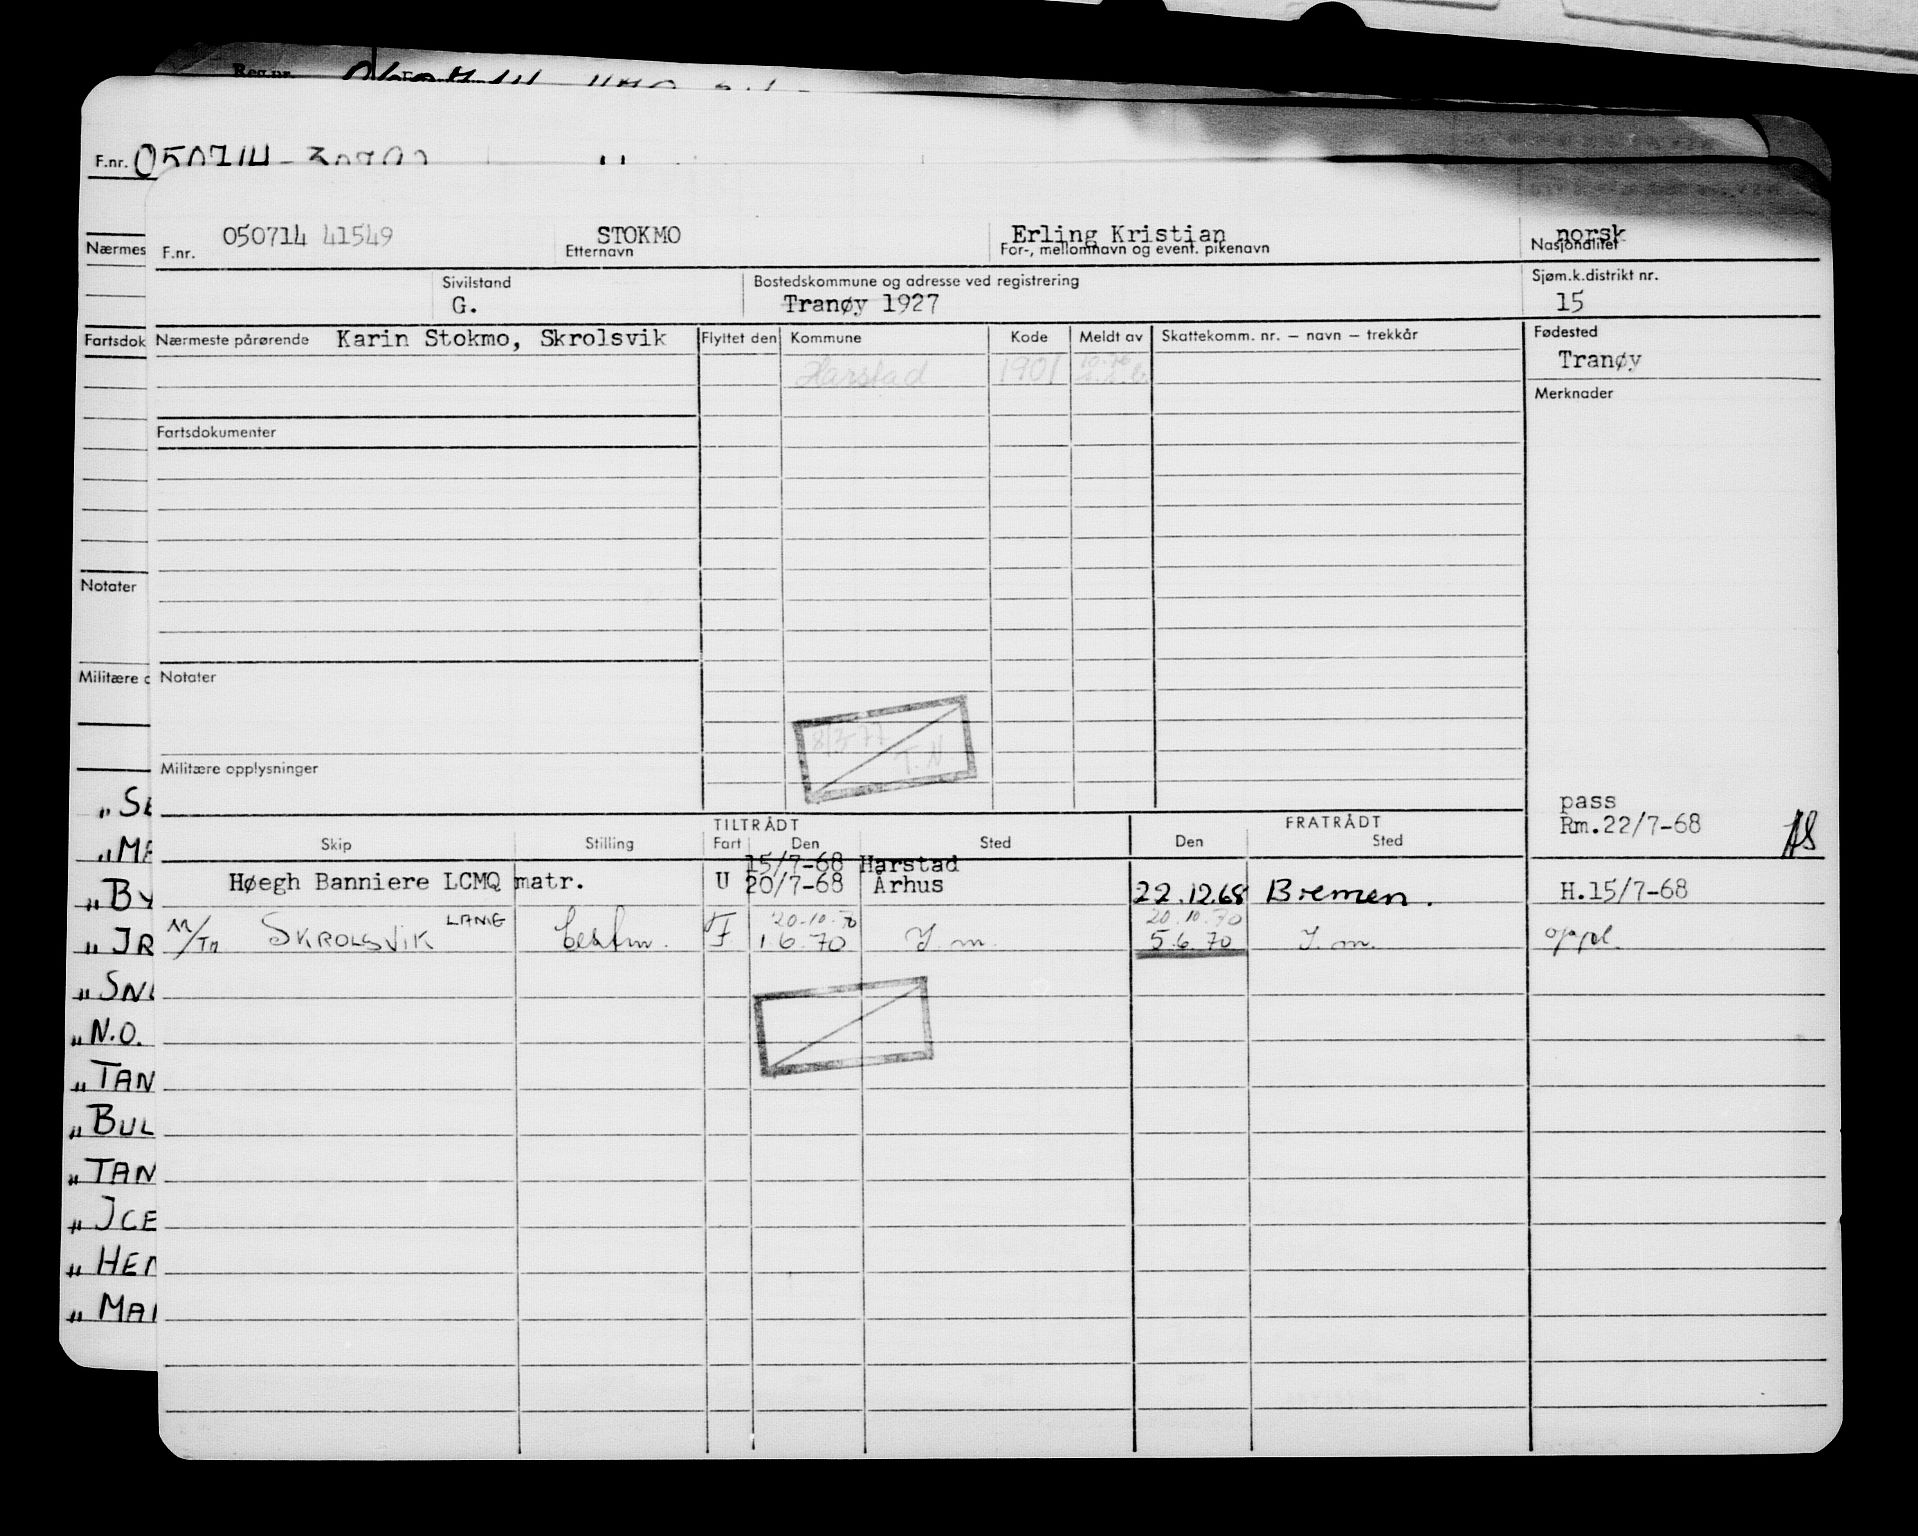 Reg.nr.
F.nr. 050714
050714 41549 STOKMO Erling Kristian norsk
F.nr. Etternavn For-, mellomnavn og event. pikenavn Nasjonalitet
Nærmes
Sivilstand Bostedskommune og adresse ved registrering Sjøm.k.distrikt nr.
G. Tranøy 1927 15
Fartsdok Nærmeste pårørende Karin Stokmo, Skrolsvik Flyttet den Kommune Kode Meldt av Skattekomm. nr. – navn – trekkår Fødested
Harstad 1901 Tranøy
Merknader
Fartsdokumenter
Notater
Militære o Notater
8/3-77
T.N
Militære opplysninger
pass
Rm.22/7-68
TILTRÅDT FRATRÅDT
Skip Stilling Fart Den Sted Den Sted
15/7-68 Harstad
Høegh Banniere LCMQ matr. U 20/7-68 Århus 22.12.68 Bremen. H.15/7-68
LANG 20.10.70 20.10.70
M/Tr SKROLSVIK bestm. F 1.6.70 J.m. 5.6.70 J.m. oppl.
„ SE
„ ME
„ BY
„ JR
„ SNE
„ N.O.
„ TAN
„ BUL
„ TAN
„ JCE
„ HEN
„ MAR